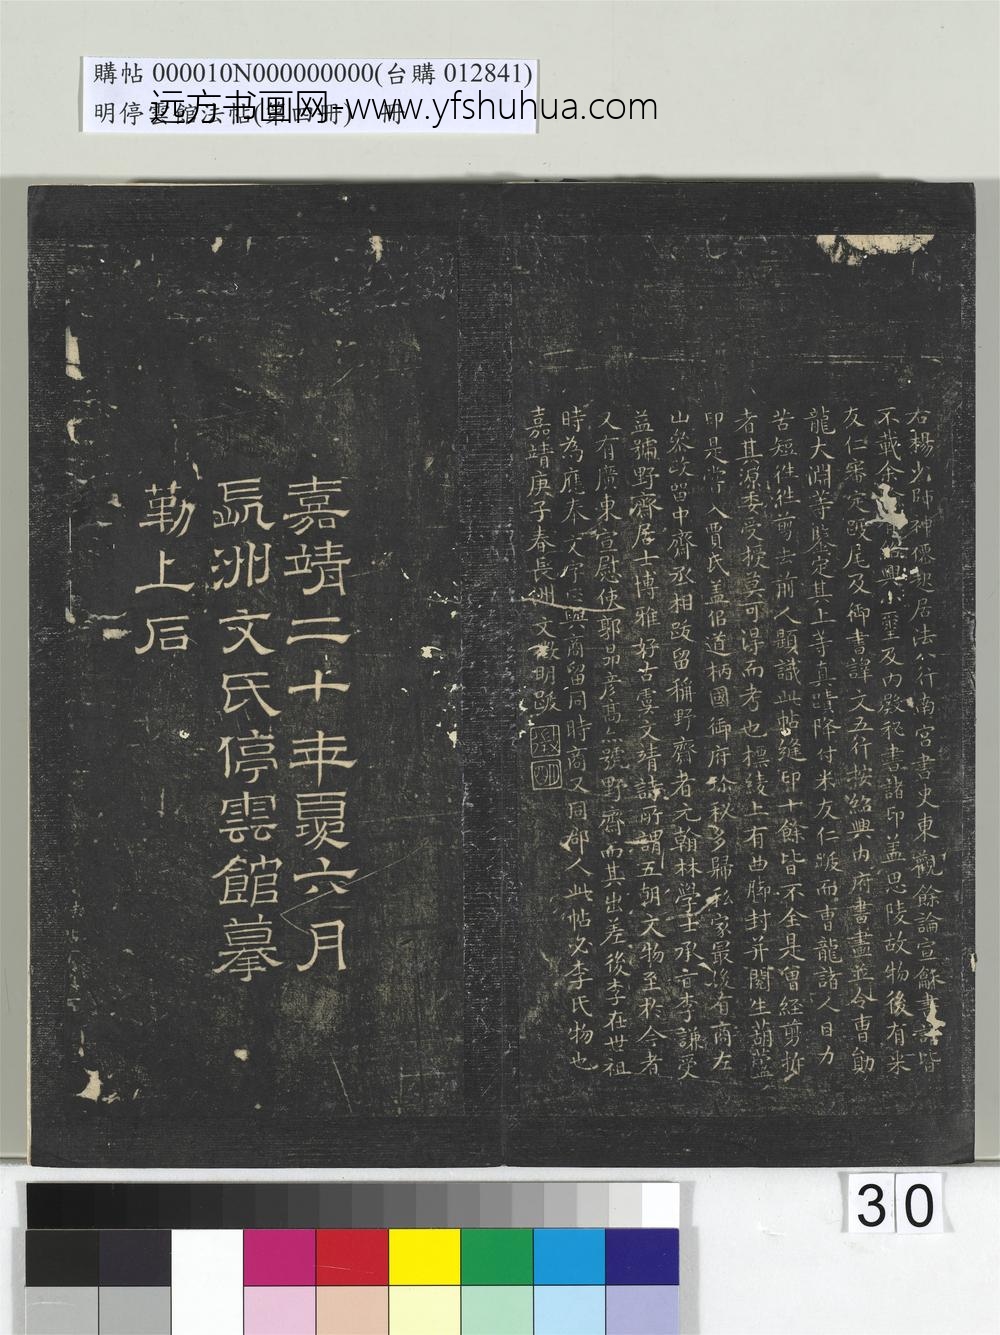 購帖 000010N000000000(台購 012841)
明停雲館法帖(第四冊) 冊
远方书画网-www.yfshuhua.com
右楊少師神僊起居法八行南宮書史東觀餘論宣龢書譜皆
不載余 紹興小璽及內殿秘書諸印蓋思陵故物後有米
友仁審定跋尾及御書諱文五行按紹興內府書畫並令曹勛
龍大淵等鑒定其上等真蹟降付米友仁跋而曹龍諸人目力
苦短往往剪去前人題識此帖縫印十餘皆不全是曾經剪拆
者其源委受授莫可得而考也標綾上有曲腳封并閱生葫蘆
印是嘗入賈氏蓋佀道柄國御府珍秘多歸私家最後有商左
山參政留中齋丞相跋留稱野齋者元翰林學士承旨李謙受
益號野齋居士博雅好古虞文靖詩所謂五朝文物至於今者
又有廣東宣慰使郭昴彥高亦號野齋而其出差後李在世祖
時為應奉文字正與商留同時商又同郡人此帖必李氏物也
嘉靖庚子春長洲文徵明跋
嘉靖二十年夏六月
長洲文氏停雲館摹
勒上石
30